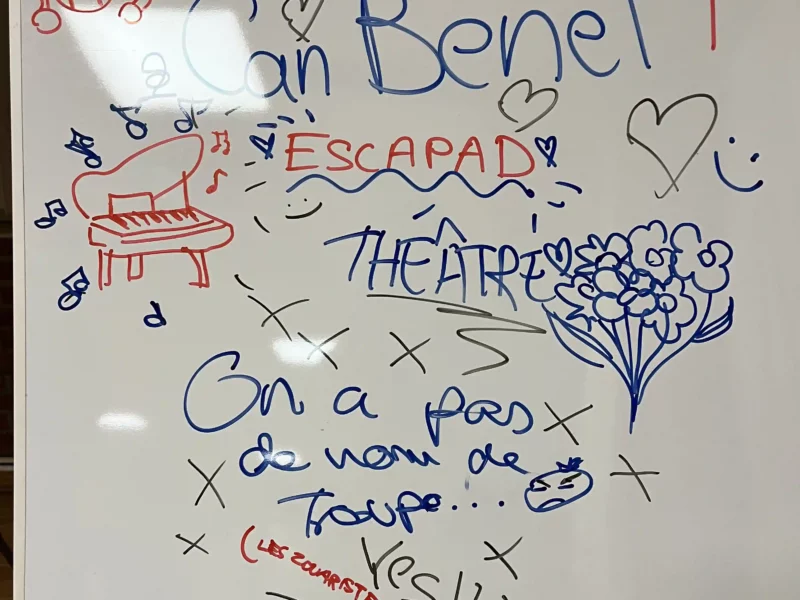 Can Benet
ESCAPAD
THÉÂTRE
On a pas
de nom de
Troupe...
(LES ZOUARISTE
Yes!!